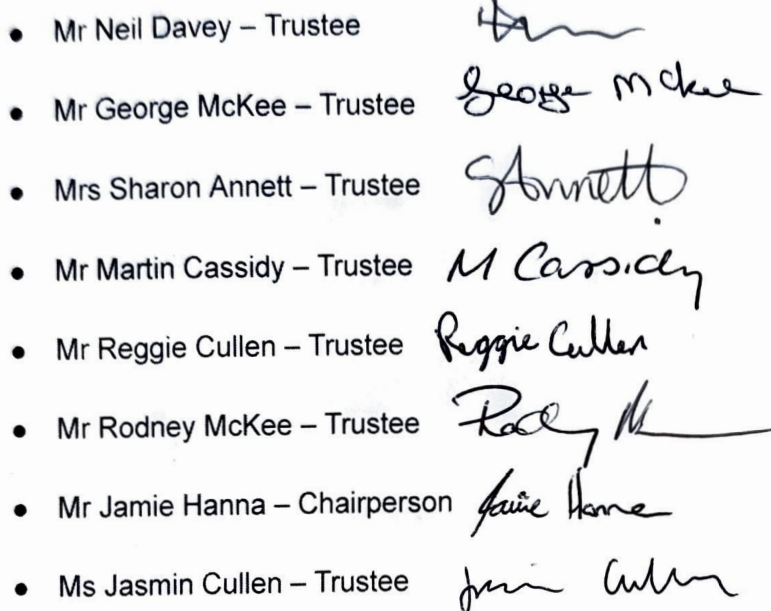 • Mr Neil Davey – Trustee
• Mr George McKee – Trustee George McKee
• Mrs Sharon Annett – Trustee SAnnett
• Mr Martin Cassidy – Trustee M Cassidy
• Mr Reggie Cullen – Trustee Reggie Cullen
• Mr Rodney McKee – Trustee
• Mr Jamie Hanna – Chairperson Jamie Hanna
• Ms Jasmin Cullen – Trustee Cullen